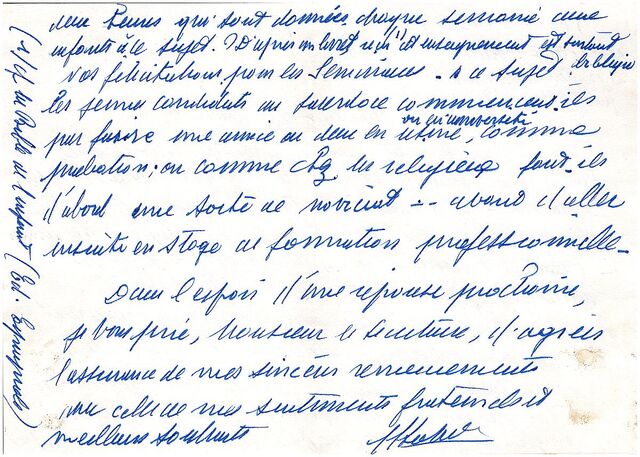 deux heures qui sont données chaque semaine aux
enfants à ce sujet. D'après un livret reçu, cet enseignement est surtout
biblique
vos félicitations pour les Séminaires. à ce sujet
les jeunes candidats au sacerdoce commencent-ils
ou qu'université
par faire une année ou deux en usine, comme
probation; ou comme chez les religieux font-ils
d'abord une sorte de noviciat -- avant d'aller
ensuite en stage de formation professionnelle -
Dans l'espoir d'une réponse prochaine,
je vous prie, Monsieur le Secrétaire, d'agréer
l'assurance de mes sincères remerciements
avec celle de mes sentiments fraternels et
meilleurs souhaits
de la Bible de l'enfant (Ed. Espagnole)